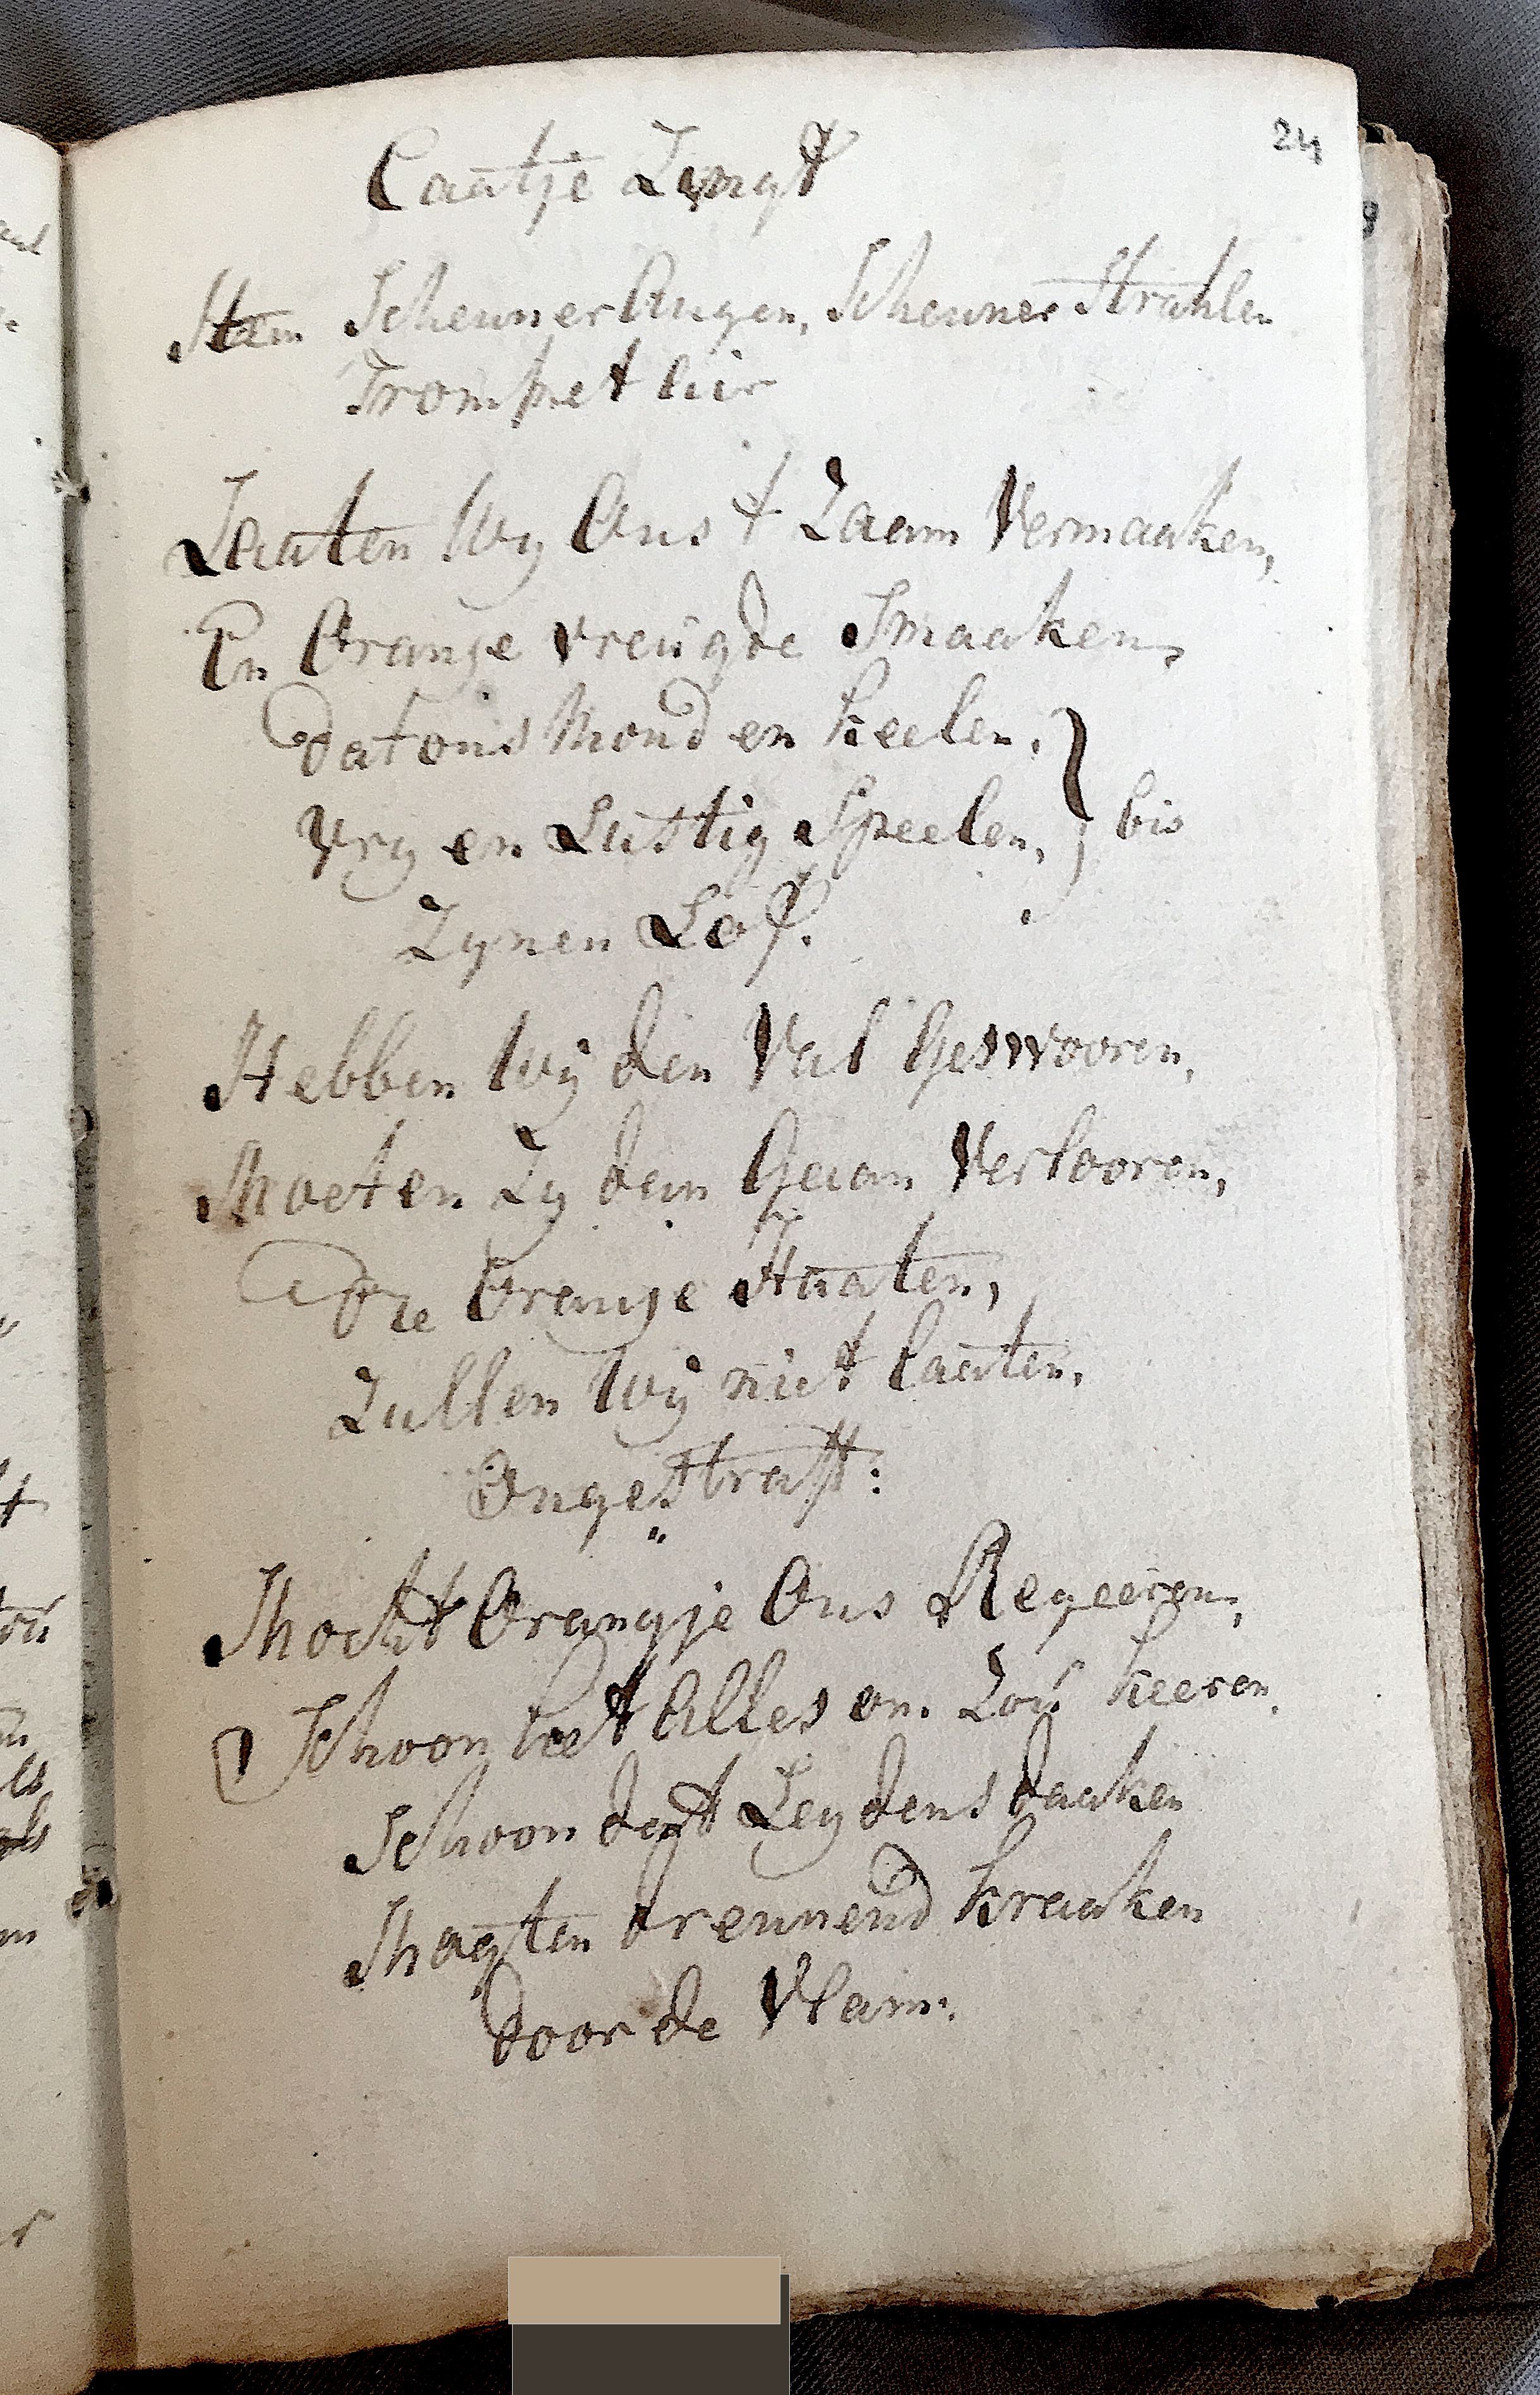 24
Caatje Zyngt
Stem Scheuner Augen, Scheuner Strahlen
Trompet lied
Laaten Wy Ons t Zaam Vermaaken,
En Oranje vreugde Smaaken,
Dat ons Mond en keelen,
Vry en Lustig Speelen, } bis
Zynen Lof.
Hebben Wij den Val Geswooren,
Moeten Zy dan Gaan Verlooren,
Die Oranje Haaten,
Zullen Wij niet laaten,
Ongestraft:
Mocht Oranje Ons Regeeren,
Schoon het Alles om Zou keeren,
Schoon dat Leydens daaken
Magten brennend kraaken
door de Vlam.